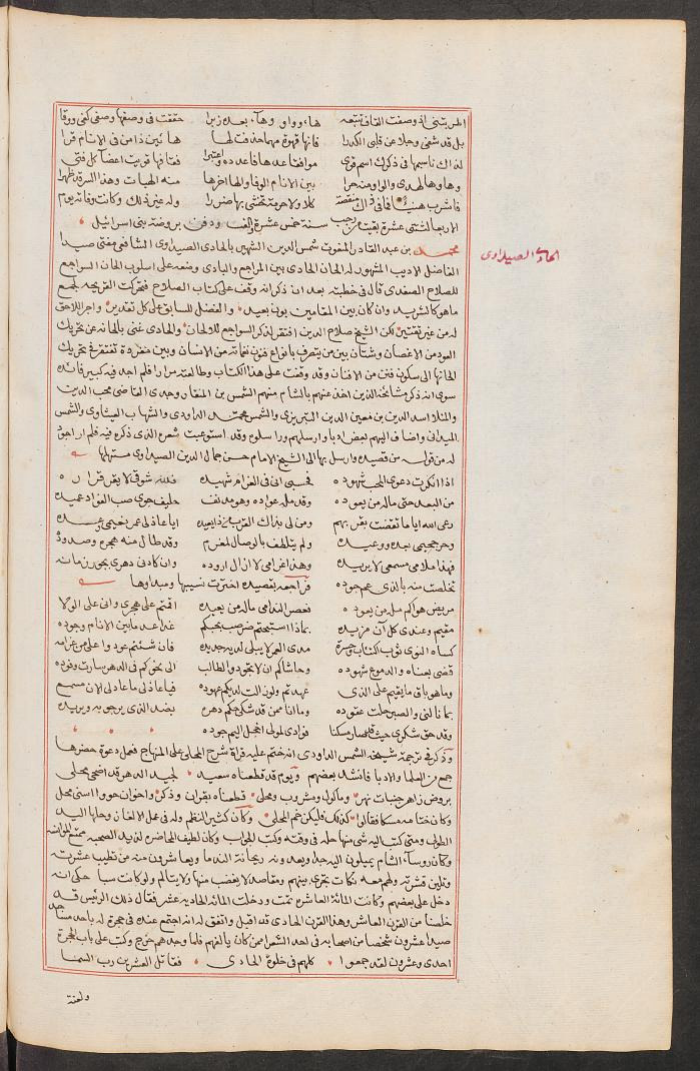 المريتني اذ وصفت القاف تتبعه هاء وواو وهاء بعده زبرا حققت في وصفها وصفي كفي ووقا
بل قد شفى وجلا عن قلبي الكدرا فانها قهوة مهما حذفت لها
لذاك ناسبها في ذكرك اسم قوي موافقا عدها فاعدده واعتبرا فقافها قويت اعضا كل فتى
وهاوها للهدى والواو من بين الانام الوفا والها اخرها منه الهبات وهذا السر قد ظهرا
فاشرب هنيئا فما في ذاك منقصة كلا ولا حرمة تخشى بها ضررا وله غير ذلك وكانت وفاته يوم
الاربعا لثنتي عشرة بقيت من رجب سنة خمس عشرة والف ودفن بروضة بني اسرائيل
محمد بن عبد القادر المنعوت شمس الدين الشهير بالحادي الصيداوي الشافعي مفتي صيدا
الحادي الصيداوي
الفاضل الاديب المشهور له الحان الحادي بين المراجع والبادي وضعه على اسلوب الحان السواجع
للصلاح الصفدي قال في خطبته بعد ان ذكر انه وقف على كتاب الصلاح فتحركت القريحة لجمع
ماهو كالشريد وان كان بين المقامين بون بعيد والفضل للسابق على كل تقدير واجر اللاحق
له من غير تقتير لكن الشيخ صلاح الدين افتقر لذكر السواجع للالحان والحادي غني بالحانه عن تحريك
العود من الاغصان وشتان بين من يتصرف بانواع فنون نغماته من الانسان وبين مغردة تفتقر في تحريك
الحانها الى سكون فنن من الافنان وقد وقفت على هذا الكتاب وطالعته مرارا فلم اجد فيه كبير فائدة
سوى انه ذكر مشائخه الذين اخذ عنهم بالشام منهم الشمس بن المنقار وجدي القاضي محب الدين
والمنلا اسد الدين بن معين الدين التبريزي والشمس محمد الداودي والشهاب العيثاوي والشمس
الميداني واضاف اليهم بعض ادبا وارسلهم وراسلوه وقد استوعبت شعره الذي ذكره فيه فلم ار اجود
له من قوله من قصيدة وارسل بها الى الشيخ الامام حسن جمال الدين الصيداوي مستهلها
اذا انكرت دعوى المحب شهوده فحسبي اني في الغرام شهيده فلله شوقي لا يقر قراره
من البعد حتى ماله من يعوده وقد مله عواده وهو مدنف حليف جوى صب الفؤاد عميده
رعى الله اياما تقضت بقربهم ومن لي بذاك القرب من ذا يعيده ايا عاذلي عمن نعيمي
وحر جحيمي بعده ووعيده ولم يتلطف بالوصال لمغرم وقد طال منه هجره وصدوده
فهذا ملامي مسمعي لا يريده وهذا غرامي لا ازال اروده وان كان في دهري يجور زمانه
تخلصت منه بالذي عم جوده فراجعه بقصيدة اخترت نسيبها ومبداوها
مريض هواكم مله من يعوده اقمتم على هجري واني على الولا
مقيم وعندي كل آن مزيده بماذا استبحتم ضر صب بحبكم غدا عدما بين الانام وجوده
مدى العمر لا يبلى لديه جديده فان شئتم عودوا على من غرامه
قضى بعناه والدموع شهوده وحاشاكم ان لا تجودوا لطالب الى بحركم في الدهر سارت وفوده
وما هو باق ما يقيم على الذي عهدتم ولو زالت لديكم عهوده فيا عاذلي ما عاد لي الان مسمع
وما انا ممن قد شكى جكم دهره بضد الذي يرجو به ويريده
فؤادي لمولى اخجل اليم جوده
وذكر في ترجمة شيخه الشمس الداودي انه ختم عليه قراة شرح المحلي على المنهاج فعمل دعوة حضرها
جمع من العلما والادبا فانشد بعضهم ويوم قد قطعناه سعيد لجيد الدهر قد اضحى محلي
بروض زاهر جنبات نهر وماكول ومشروب ومحلي قطعناه بقران وذكر واخوان حووا اسنى محل
وكان ختامه مسكا فقالوا كذلك فليكن ختم المحلي وكان كثير النظم وله في عمل الالغاز وحلها اليد
الطولى ومتى كتب اليه شئ منها حله في وقته وكتب الجواب وكان لطيف المحاضرة لذيذ الصحبة ممتع المؤانسة
وكان روسا الشام يميلون اليه جدا ويعدونه ريحانة الندما ويعاشرون منه من تطيب عشرته
وتلين قشرته ولهم معه نكات تجري بينهم ومقاصد لا يغضب منها ولا يتالم ولو كانت سبا حكي انه
دخل على بعضهم وكانت المائة العاشرة تمت ودخلت المائة الحادية عشر فقال ذلك الرئيس قد
خلصنا من القرن العاشر وهذا القرن الحادي قد اقبل واتفق له انه اجتمع عنده في حجرة له باحد مساجد
صيدا عشرون شخصا من اصحابه في احد الشعرا ممن كان يالفهم فلما وجدهم خرج وكتب على باب الحجرة
احدى وعشرون لقد جمعوا كلهم في خلوة الحادي فقاتل العشرين رب السما
ولعنة